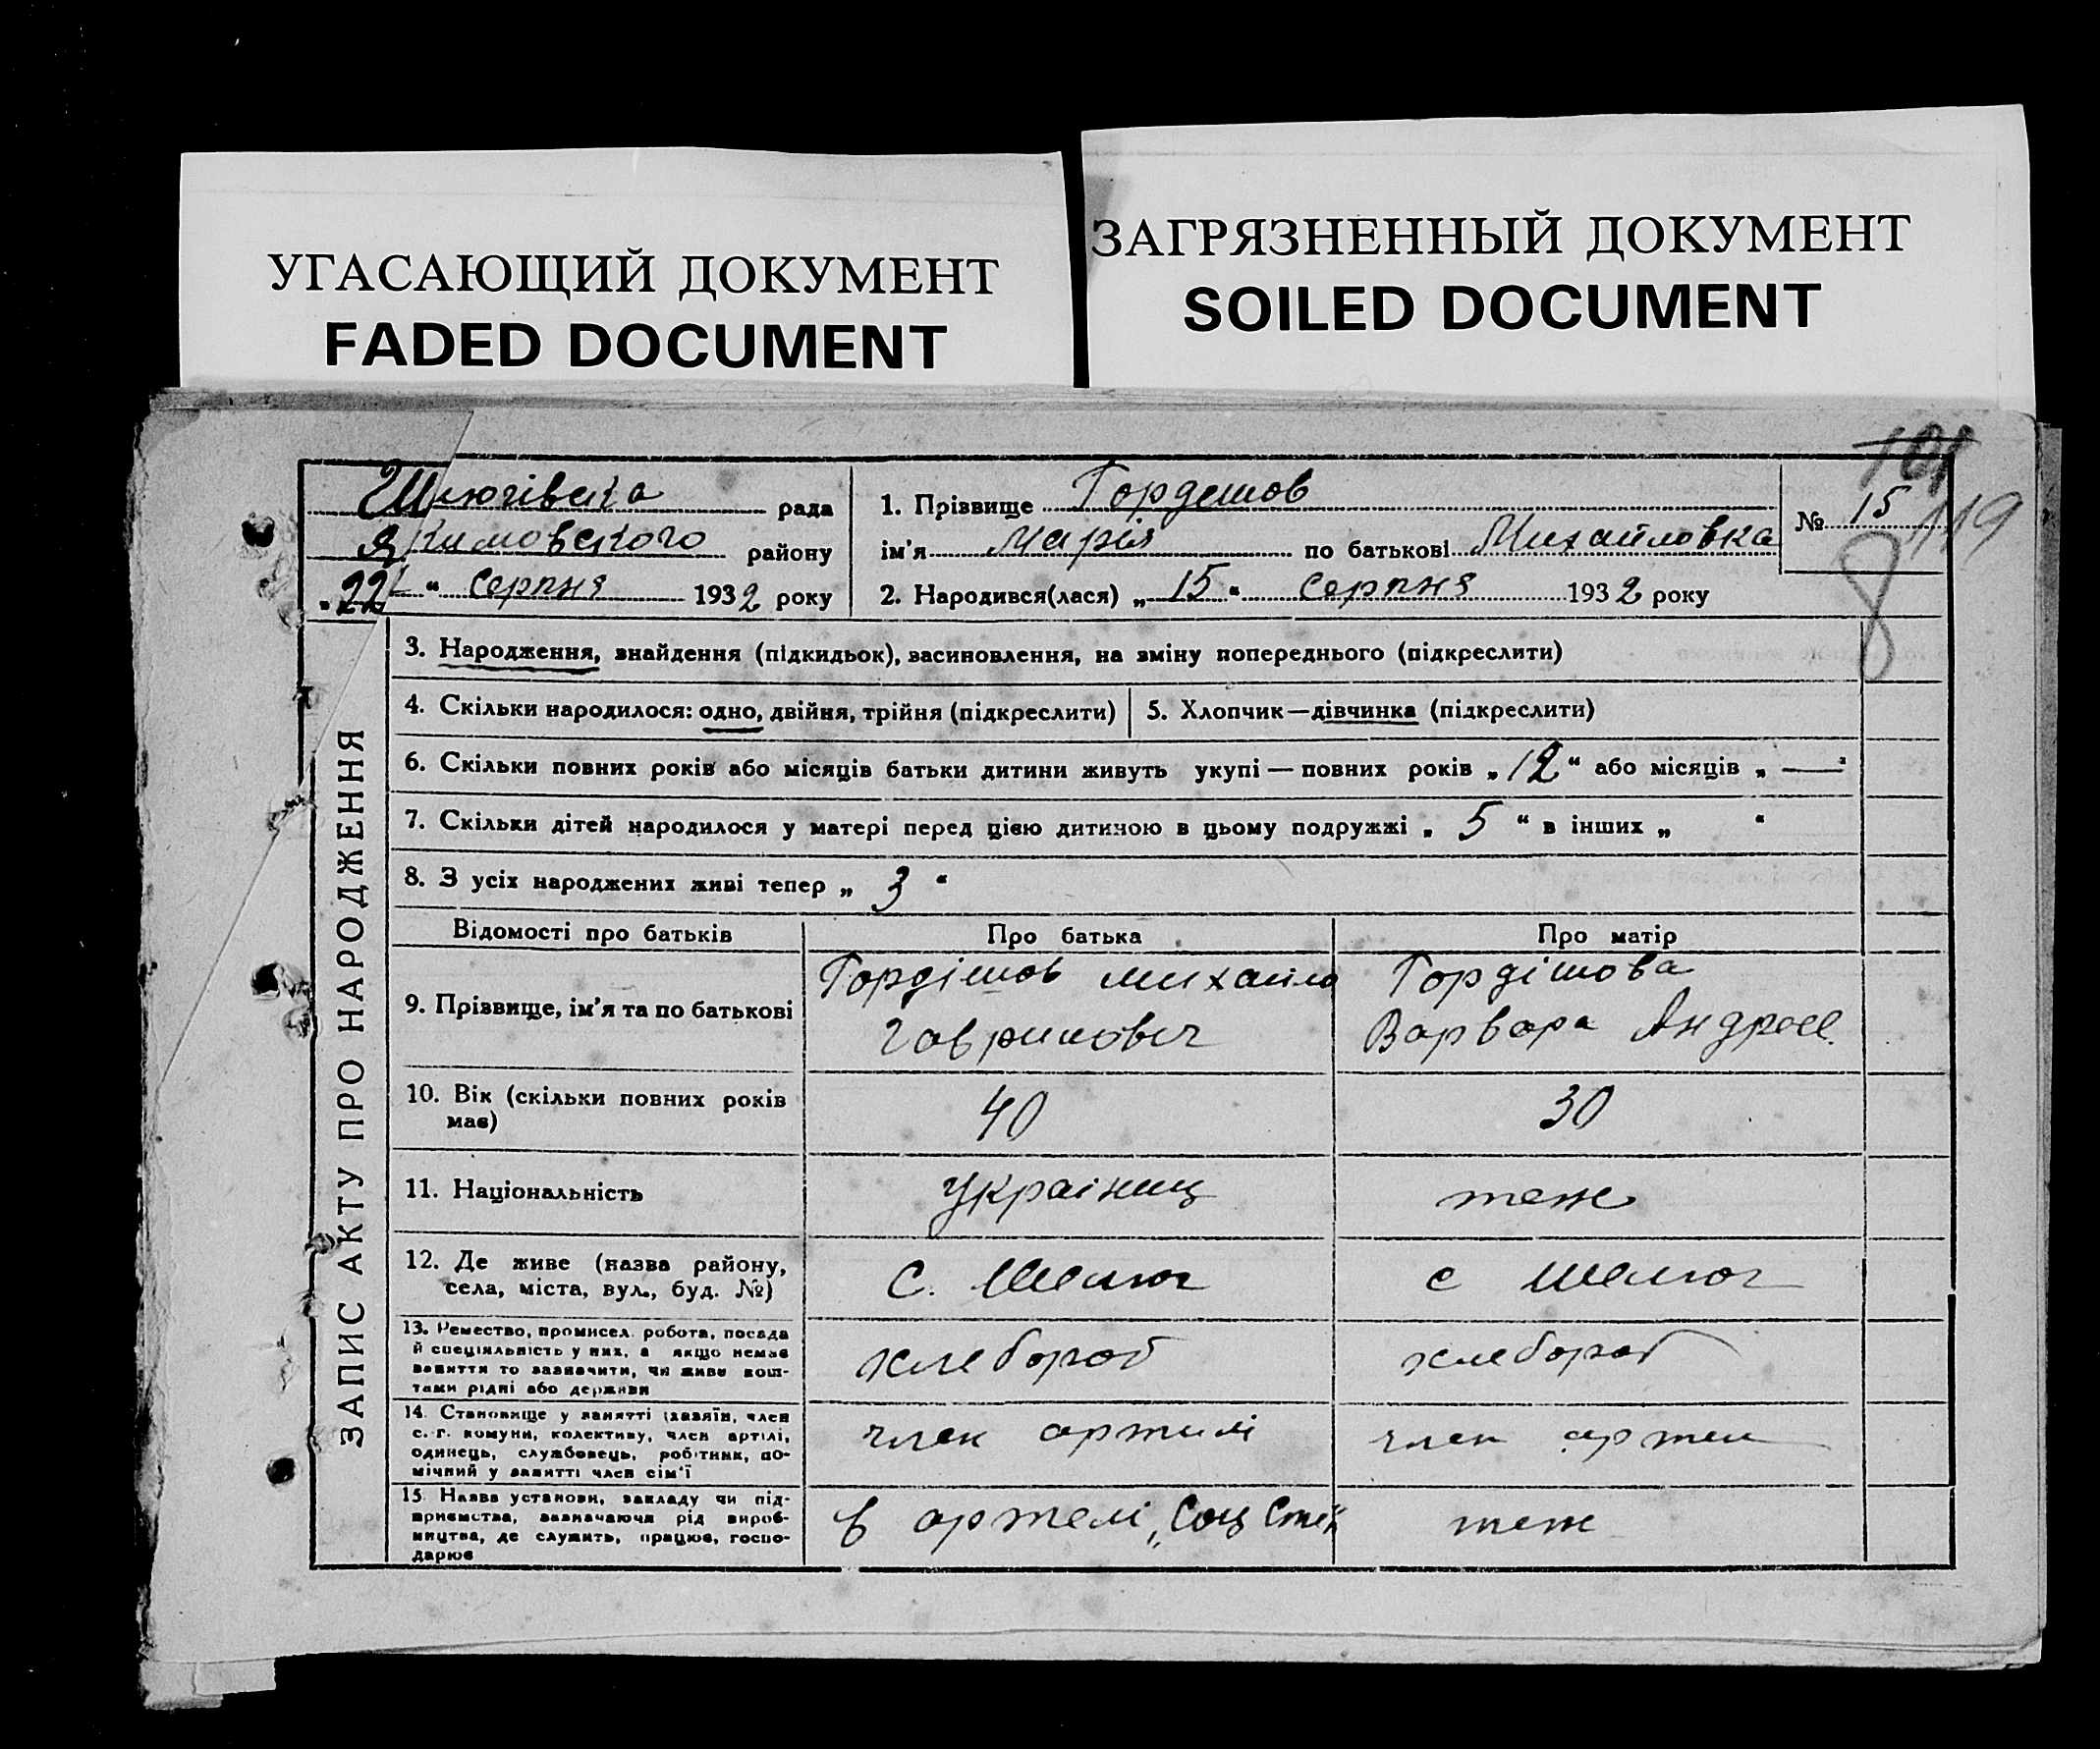 УГАСАЮЩИЙ ДОКУМЕНТ
FADED DOCUMENT
ЗАГРЯЗНЕННЫЙ ДОКУМЕНТ
SOILED DOCUMENT
101
119
8
Шелюгівська рада
Якимовського району
„22“ серпня 1932 року
1. Прізвище Гордешов
ім'я Марія по батькові Михайловка
№ 15
2. Народився(лася) „15“ серпня 1932 року
ЗАПИС АКТУ ПРО НАРОДЖЕННЯ
3. Народження, знайдення (підкидьок), засиновлення, на зміну попереднього (підкреслити)
4. Скільки народилося: одно, двійня, трійня (підкреслити)
5. Хлопчик—дівчинка (підкреслити)
6. Скільки повних років або місяців батьки дитини живуть укупі — повних років „12“ або місяців „—“
7. Скільки дітей народилося у матері перед цією дитиною в цьому подружжі „5“ в інших „ “
8. З усіх народжених живі тепер „3“
Відомості про батьків
Про батька
Про матір
9. Прізвище, ім'я та по батькові
Гордішов Михайло
Гаврилович
Гордішова
Варвара Андреє.
10. Вік (скільки повних років
має)
40
30
11. Національність
Українец
теж
12. Де живе (назва району,
села, міста, вул., буд. №)
С. Шелюг
с Шелюг
13. Ремество, промисел. робота, посада
й спеціяльність у них, а якщо немає
заняття то зазначити, чи живе кош-
тами рідні або держави
хлебороб
хлебороб
14. Становище у занятті (хазяїн, член
с.-г. комуни, колективу, член артілі,
одинець, службовець, робітник, по-
мічний у занятті член сім'ї
член артилі
член артел
15. Назва установи, закладу чи під-
приємства, зазначаючи рід вироб-
ництва, де служить, працює, госпо-
дарює
в артелі „Соц
теж